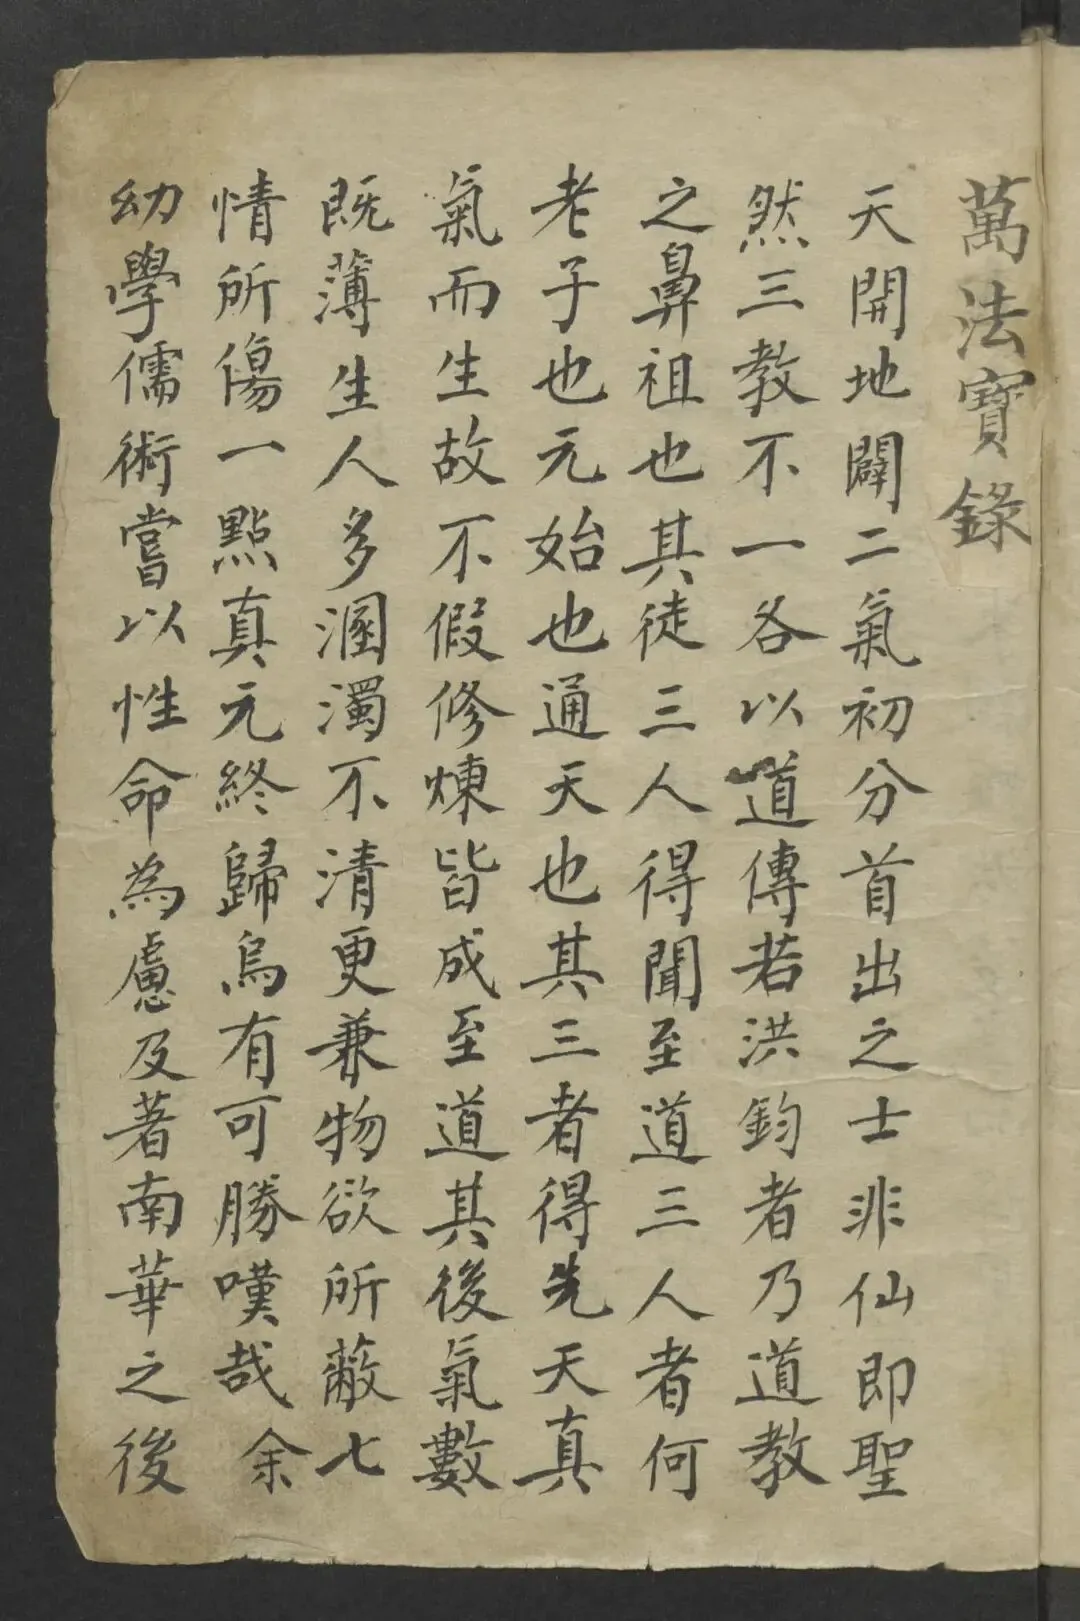 萬法寶錄
天開地闢二氣初分首出之士非仙即聖
然三教不一各以道傳若洪鈞者乃道教
之鼻祖也其徒三人得聞至道三人者何
老子也元始也通天也其三者得先天真
氣而生故不假修煉皆成至道其後氣數
既薄生人多溷濁不清更兼物欲所蔽七
情所傷一點真元終歸烏有可勝嘆哉余
幼學儒術嘗以性命為慮及著南華之後